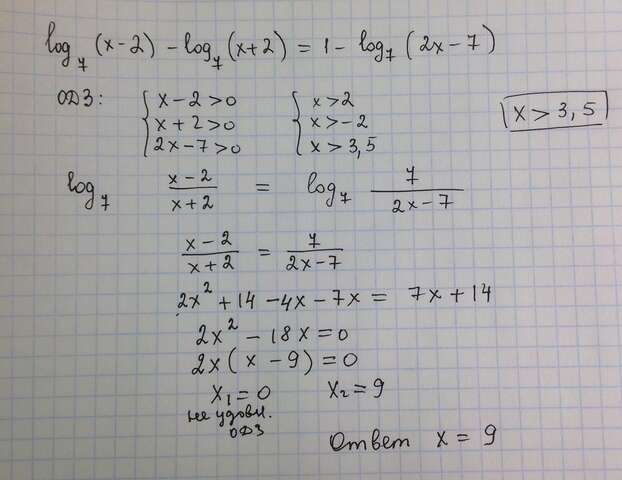 log₇ (x-2) - log₇ (x+2) = 1 - log₇ (2x-7)
ОДЗ: { x-2>0 { x>2
x+2>0 x>-2 x > 3,5
2x-7>0 x>3,5
log₇ (x-2)/(x+2) = log₇ 7/(2x-7)
(x-2)/(x+2) = 7/(2x-7)
2x² + 14 - 4x - 7x = 7x + 14
2x² - 18x = 0
2x(x - 9) = 0
x₁ = 0 x₂ = 9
не удовл.
ОДЗ
Ответ x = 9